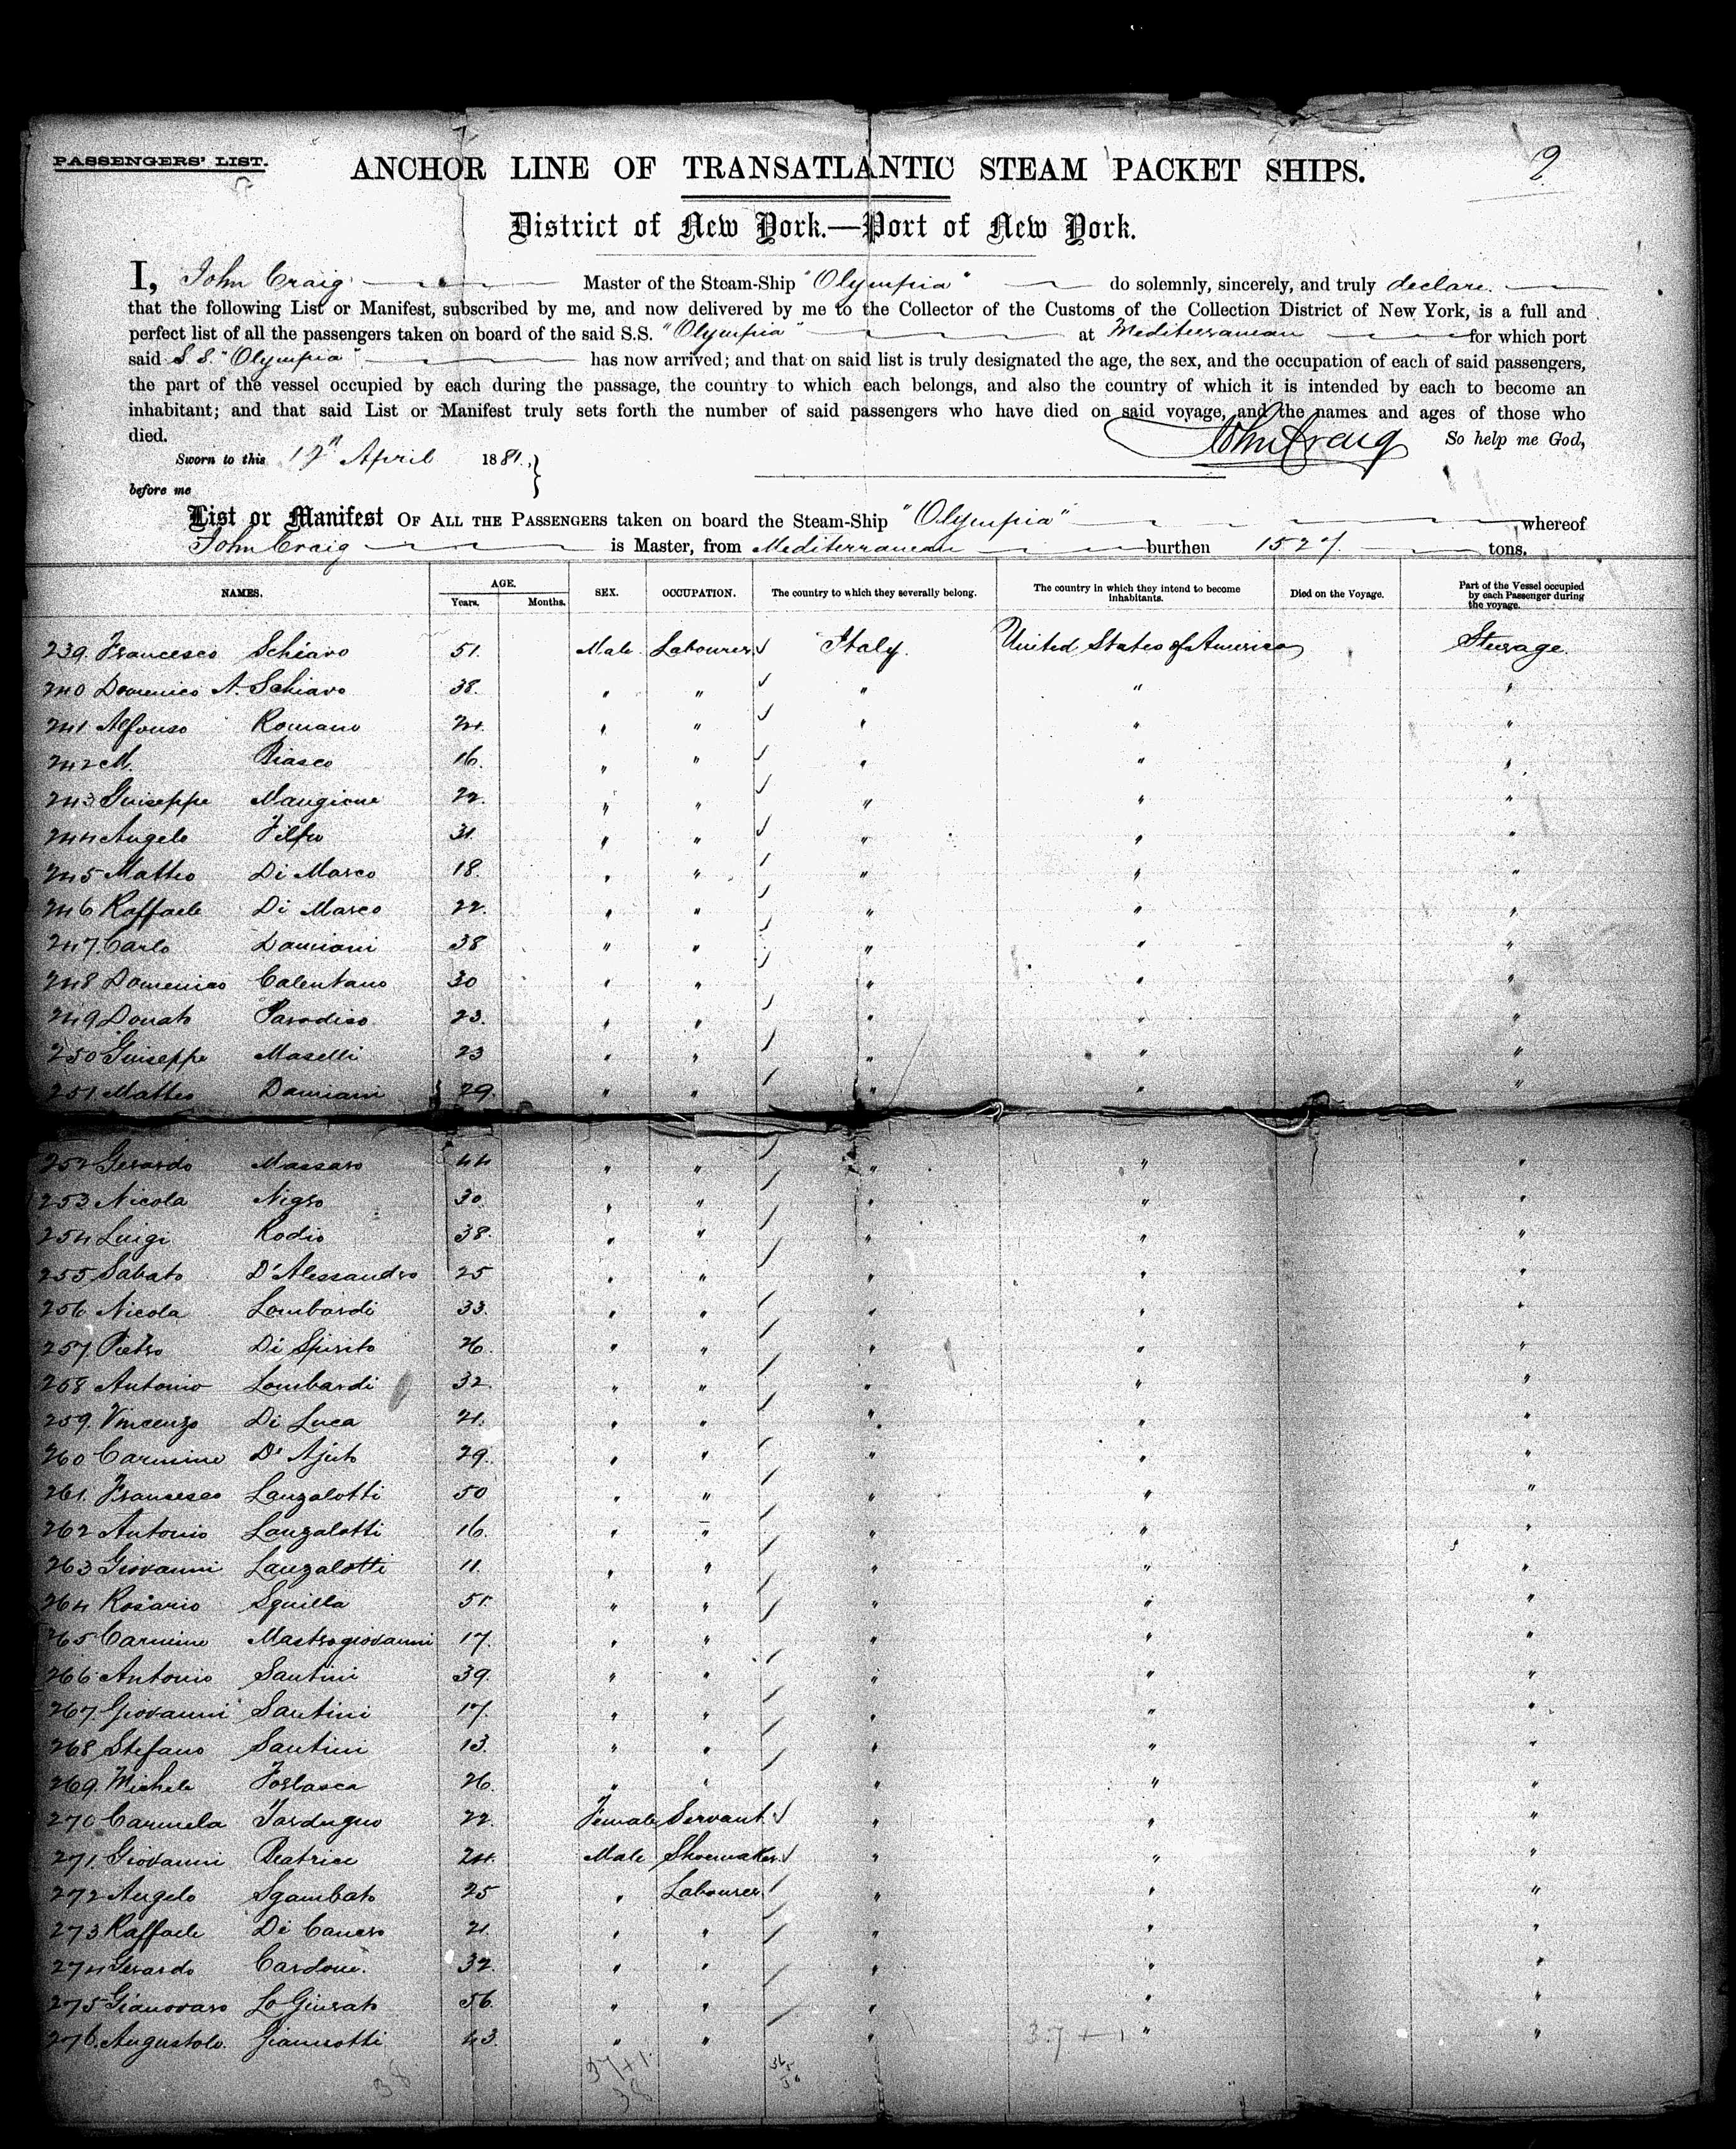 PASSENGERS' LIST.
ANCHOR LINE OF TRANSATLANTIC STEAM PACKET SHIPS.
District of New York.—Port of New York.
I, John Craig Master of the Steam-Ship "Olympia" do solemnly, sincerely, and truly declare.
that the following List or Manifest, subscribed by me, and now delivered by me to the Collector of the Customs of the Collection District of New York, is a full and
perfect list of all the passengers taken on board of the said S.S. "Olympia" at Mediterranean for which port
said S.S. "Olympia" has now arrived; and that on said list is truly designated the age, the sex, and the occupation of each of said passengers,
the part of the vessel occupied by each during the passage, the country to which each belongs, and also the country of which it is intended by each to become an
inhabitant; and that said List or Manifest truly sets forth the number of said passengers who have died on said voyage, and the names and ages of those who
died. John Craig So help me God,
Sworn to this April 1881.
before me
List or Manifest OF ALL THE PASSENGERS taken on board the Steam-Ship "Olympia" whereof
John Craig is Master, from Mediterranean burthen 1527 tons.
NAMES. AGE. Years. Months. SEX. OCCUPATION. The country to which they severally belong. The country in which they intend to become inhabitants. Died on the Voyage. Part of the Vessel occupied by each Passenger during the voyage.
239. Francesco Schiavo 51. Male. Labourer. Italy. United States of America Steerage.
240 Domenico A. Schiavo 38. " " " " "
241 Alfonso Romano 24. " " " " "
242 M. Biasco 16. " " " " "
243 Guiseppe Mangione 22. " " " " "
244 Angelo 31. " " " " "
245 Matteo Di Marco 18. " " " " "
246 Raffaele Di Marco 22. " " " " "
247. Carlo Damiani 38 " " " " "
248 Domenico Calentano 30 " " " " "
249 Donato Paradiso. 23. " " " " "
250 Guiseppe Maselli 23 " " " " "
251 Matteo Damiani 29. " " " " "
252 Gerardo Massaro 44 " " " " "
253 Nicola Nigro 30. " " " " "
254 Luigi Rodio 38. " " " " "
255 Sabato D'Alessandro 25 " " " " "
256 Nicola Lombardi 33. " " " " "
257. Pietro Di Spirito 26. " " " " "
258 Antonio Lombardi 32. " " " " "
259. Vincenzo Di Luca 21. " " " " "
260 Carmine D' Ajuto 29. " " " " "
261. Francesco Lanzalotti 50 " " " " "
262 Antonio Lanzalotti 16. " " " " "
263 Giovanni Lanzalotti 11. " " " " "
264 Rosario Squilla 51. " " " " "
265 Carmine Mastrogiovanni 17. " " " " "
266 Antonio Santini 39. " " " " "
267. Giovanni Santini 17. " " " " "
268 Stefano Santini 13. " " " " "
269. Michele 26. " " " " "
270 Carmela Tardugno 22. Female Servant. " " "
271. Giovanni Beatrice 24. Male Shoemaker. " " "
272 Angelo Sgambato 25 " Labourer. " " "
273 Raffaele Di 21. " " " " "
274 Gerardo Cardone. 32. " " " " "
275 Lo Giurato 56. " " " " "
276. Augustolo. Giannotti 43. " " " " "
37 + 1
38 37+1
38